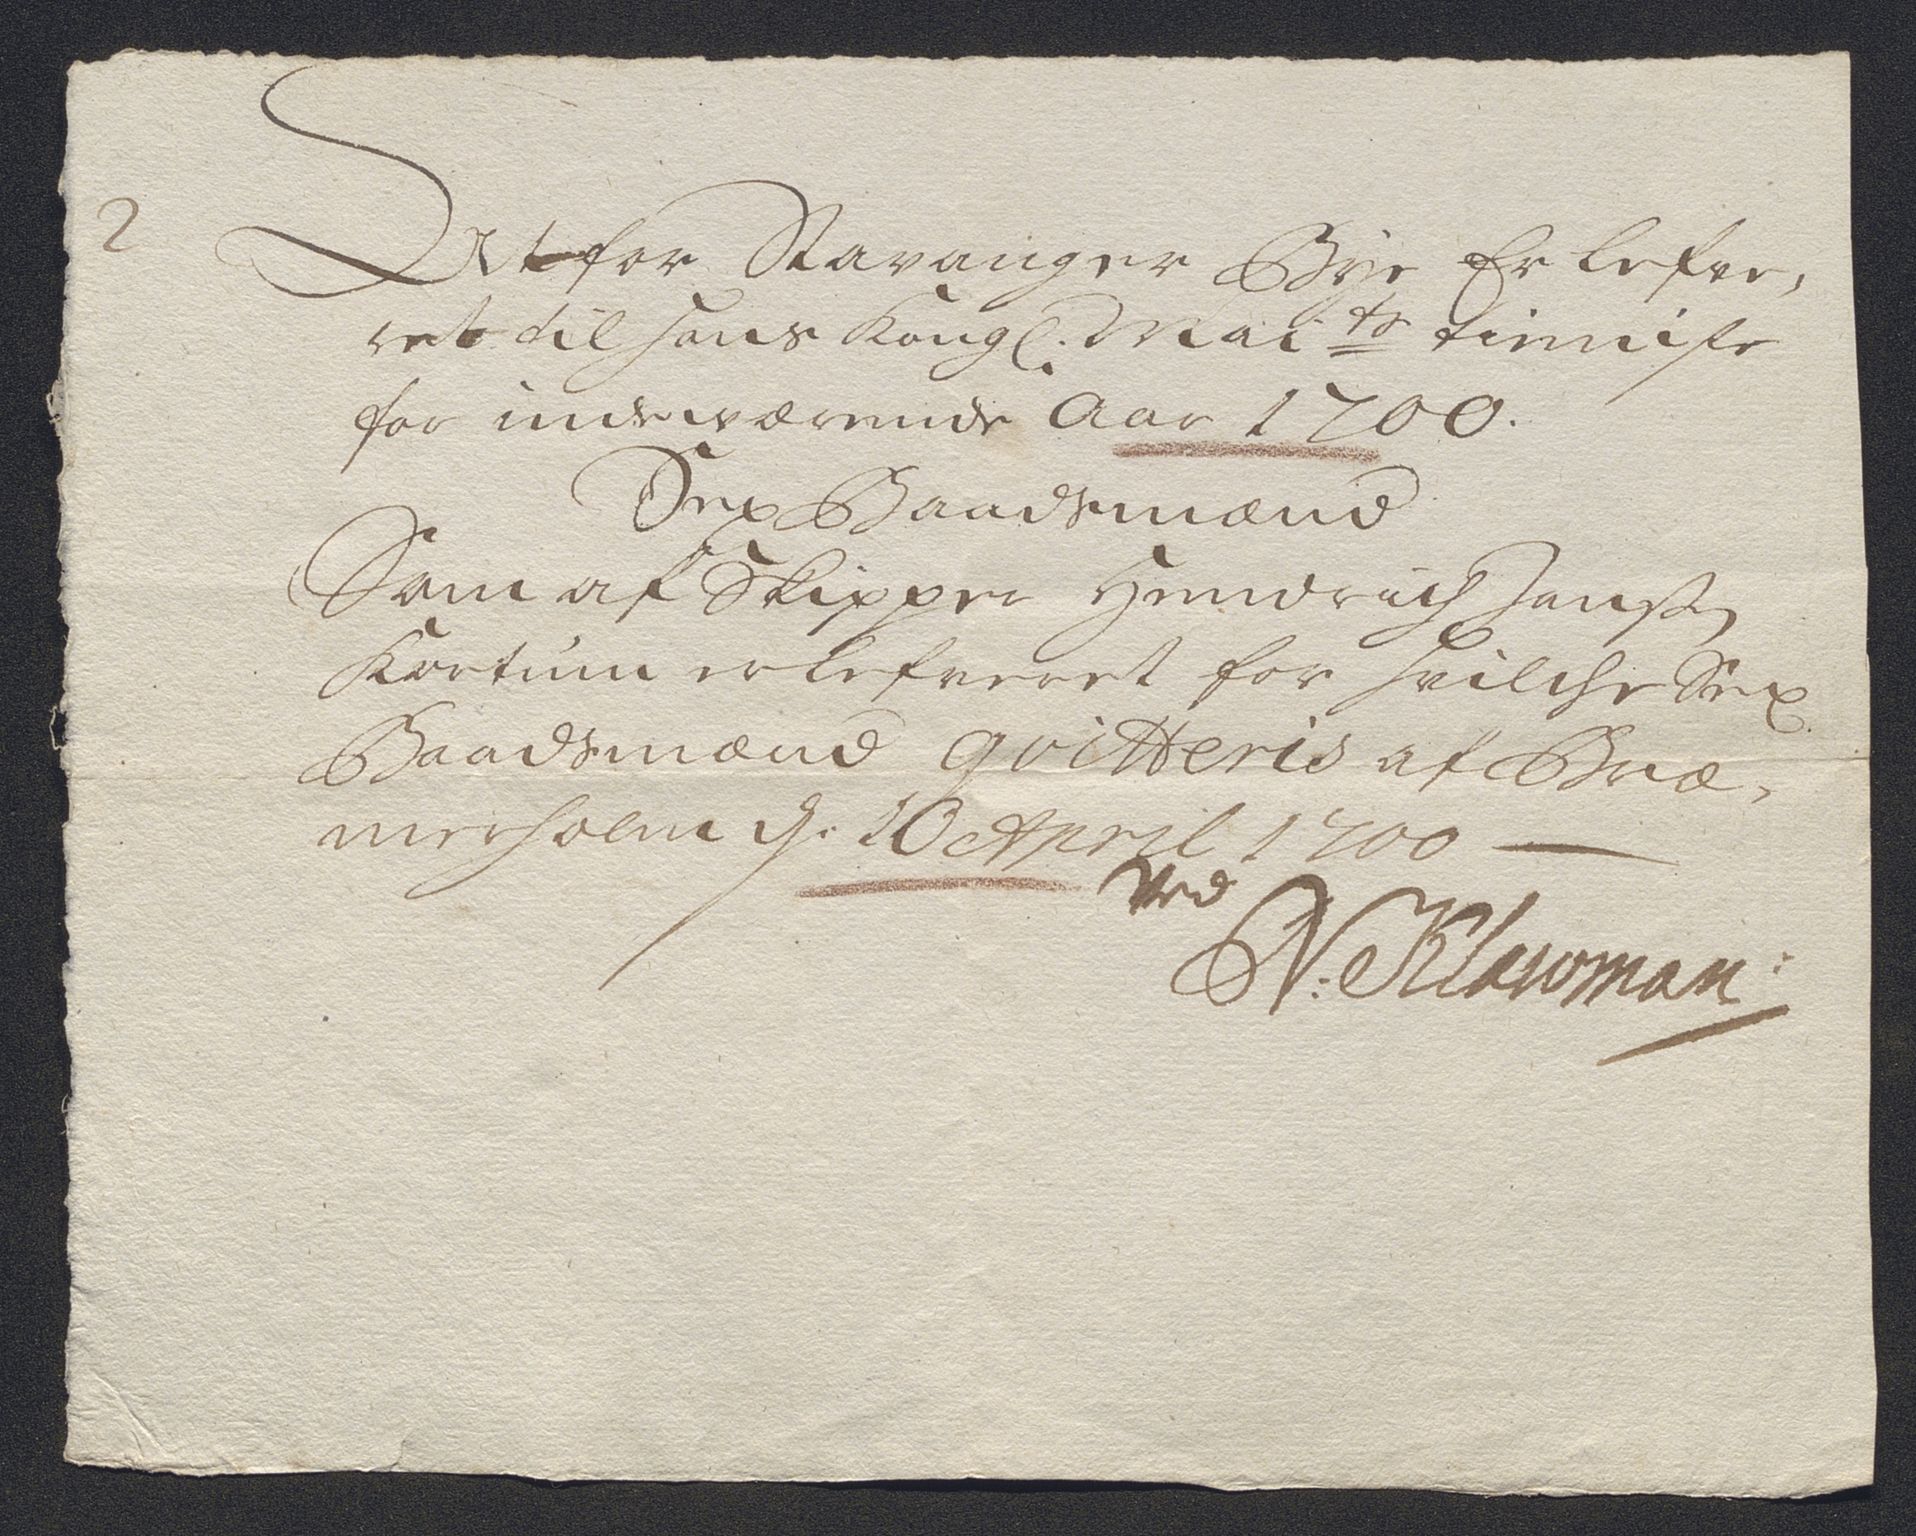 2
At for Stavanger Bye Er lefve,
ret til hans Kongl. Mai.ts tienniste
for indewærende Aar 1700.
Sex Baadsmænd
Som af Skipper Hendrich Hansen
Kortum er lefveret for hvilche Sex
Baadsmænd qvitteris af Bræ,
merholm d. 10 April 1700
Ved
N: Klawman: